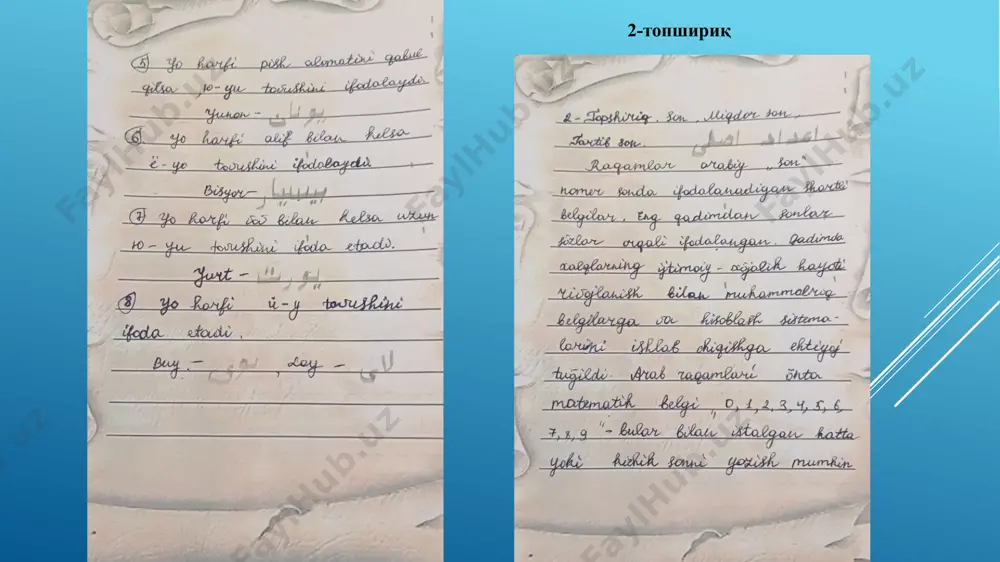 2-топшириқ
5 Yo harfi pish alomatini qabul
qilsa, ю-yu tovushini ifodalaydi
Yunon - یونان
6 Yo harfi alif bilan kelsa
ё-yo tovushini ifodalaydi
Bisyor -
7 Yo harfi bilan kelsa uzun
ю-yu tovushini ifoda etadi.
Yurt - یورت
8 Yo harfi й-y tovushini
ifoda etadi.
Buy. - بوی , Loy - لای
2-Topshiriq. Son, Miqdor son,
Tartib son. اعداد اصلی
Raqamlar arabiy "son"
nomer sonda ifodalanadigan shartli
belgilar. Eng qadimdan sonlar
sözlar orqali ifodalangan. Qadimda
xalqlarning ijtimoiy - xöjalik hayoti
rivojlanish bilan mukammalroq
belgilarga va hisoblash sistema-
larini ishlab chiqishga ehtiyoj
tuğildi. Arab raqamlari önta
matematik belgi "0,1,2,3,4,5,6,
7,8,9" - bular bilan istalgan katta
yoki kichik sonni yozish mumkin
FaylHub.uz
FaylHub.uz
FaylHub.uz
FaylHub.uz
FaylHub.uz
FaylHub.uz